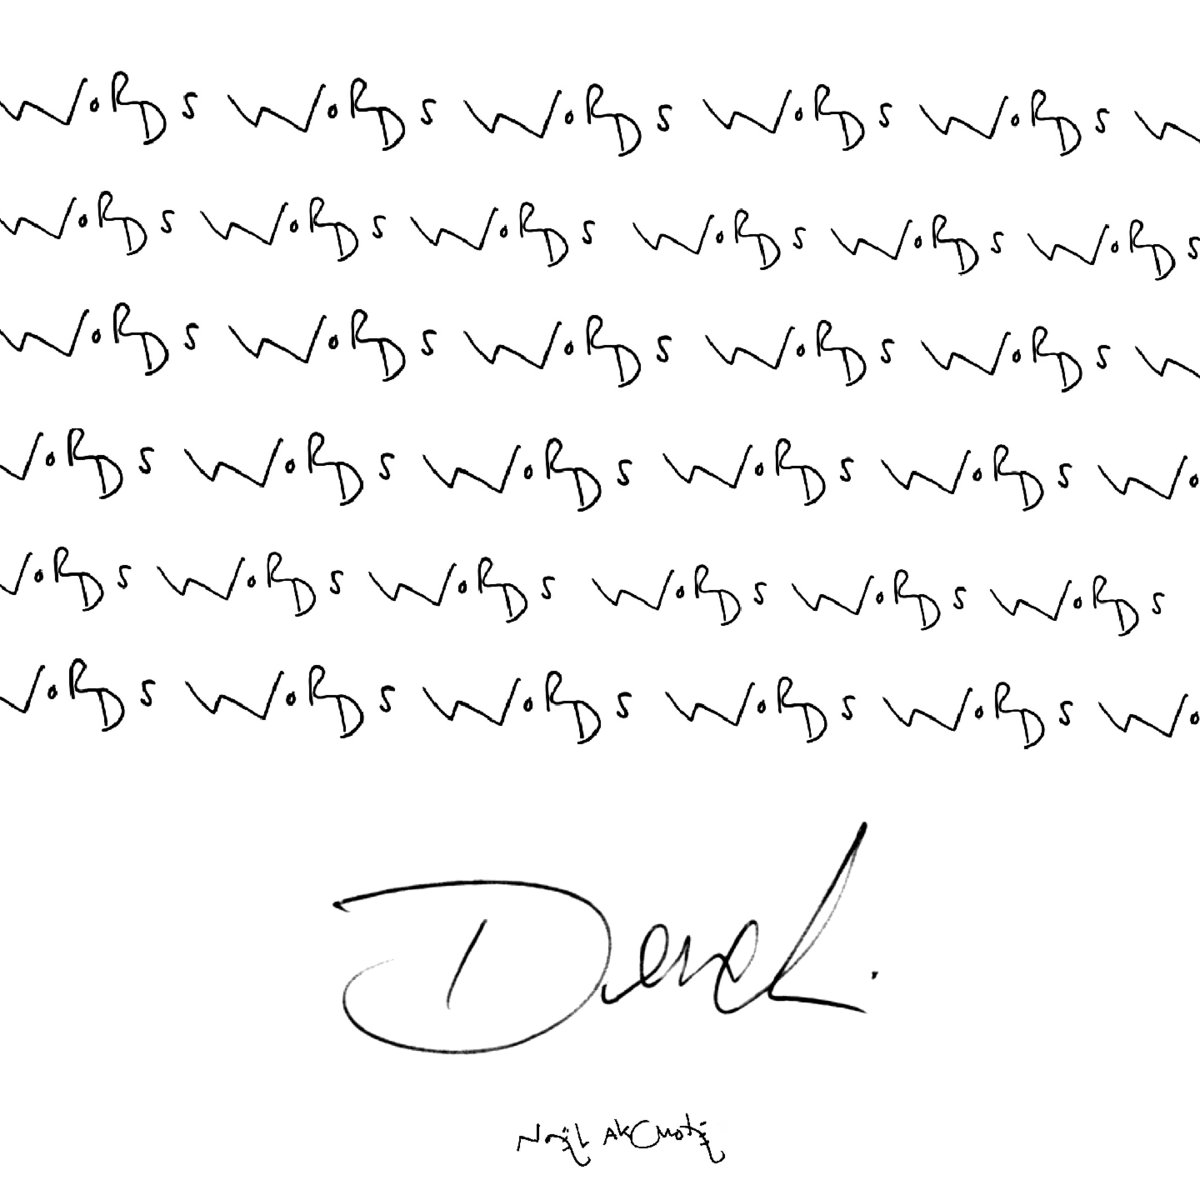 WoRDS WoRDS WoRDS WoRDS WoRDS W
WoRDS WoRDS WoRDS WoRDS WoRDS WoRDS
WoRDS WoRDS WoRDS WoRDS WoRDS W
WoRDS WoRDS WoRDS WoRDS WoRDS Wo
WoRDS WoRDS WoRDS WoRDS WoRDS WoRDS
WoRDS WoRDS WoRDS WoRDS WoRDS Wo
Derek.
Noël AkChoté